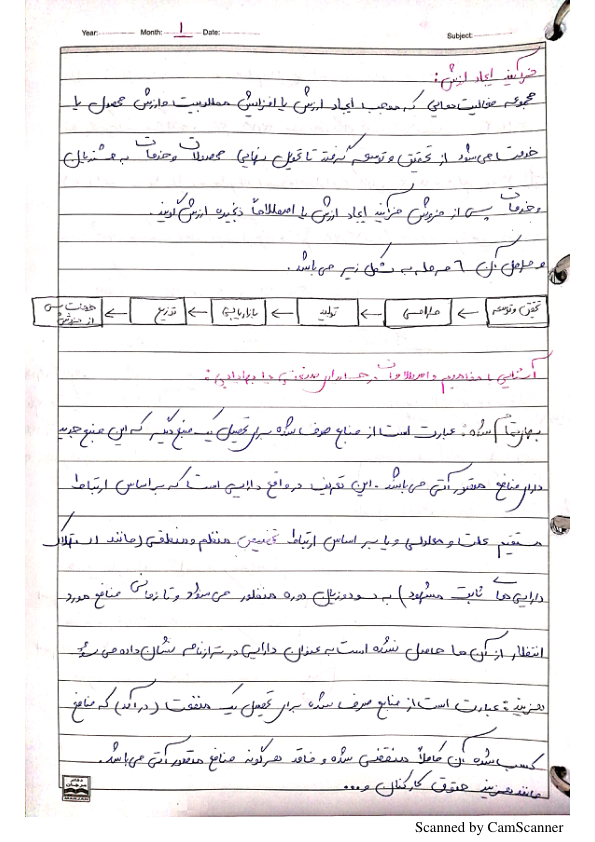 Year: Month: 1 Date: Subject:
فرآیند ایجاد ارزش:
مجموعه فعالیت‌هایی که موجب ایجاد ارزش یا افزایش مطلوبیت و ارزش محصول یا
خدمت می‌شود از تحقیق و توسعه گرفته تا تحویل نهایی محصولات و خدمات به مشتریان
و خدمات پس از فروش فرآیند ایجاد ارزش یا اصطلاحاً زنجیره ارزش گویند.
مراحل آن ۶ مرحله به شکل زیر می‌باشد.
تحقیق و توسعه ← طراحی ← تولید ← بازاریابی ← توزیع ← خدمات پس از فروش
آشنایی با مفاهیم و اصطلاحات حسابداری صنعتی یا بهایابی:
بهای تمام شده: عبارت است از منابع صرف شده برای تحصیل یک منبع دیگر که این منبع جدید
دارای منافع متصور آتی می‌باشد. این تعریف در واقع دارایی است که بر اساس ارتباط
مستقیم علت و معلولی و یا بر اساس ارتباط تخصیص منظم و منطقی (مانند استهلاک
دارایی‌های ثابت مشهود) به سود و زیان دوره منظور می‌شود و تا زمانی منافع مورد
انتظار از آن ها حاصل نشده است به عنوان دارایی در ترازنامه نشان داده می‌شود
هزینه: عبارت است از منابع صرف شده برای تحصیل یک منفعت (درآمد) که منافع
کسب شده آن کاملاً منقضی شده و فاقد هرگونه منافع متصور آتی می‌باشد.
مانند هزینه حقوق کارکنان و...
دفتر مرجان
MARJAN
Scanned by CamScanner